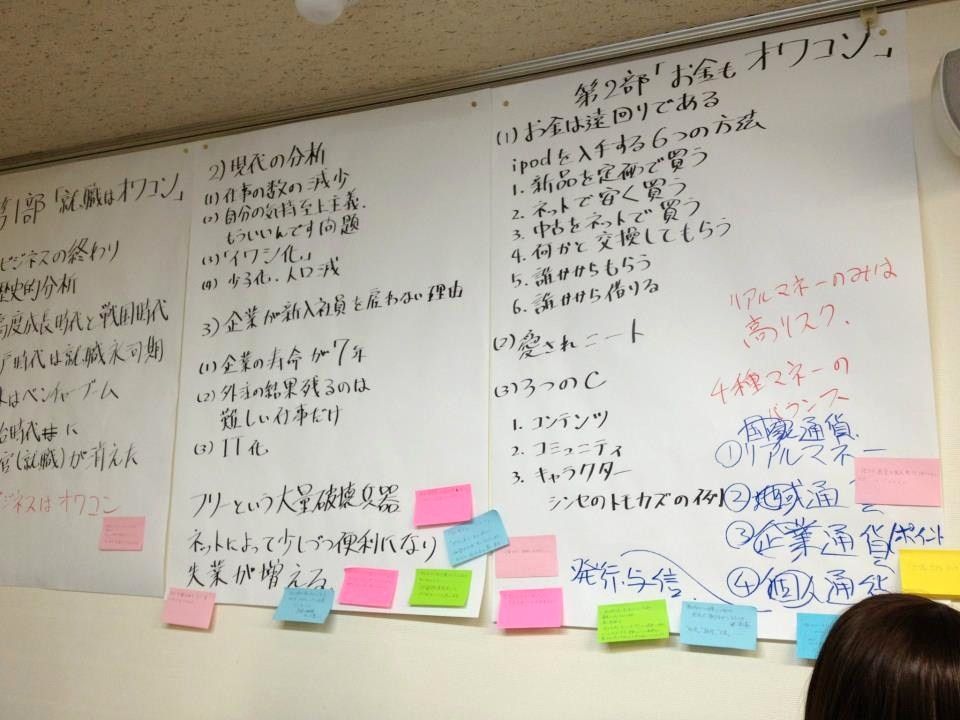 第1部「就職はオワコン」
ビジネスの終わり
歴史的分析
高度成長時代と戦国時代
戸時代は就職氷河期
はベンチャーブーム
治時代に
官(就職)が消えた
ビジネスはオワコン
2)現代の分析
(1)仕事の数の減少
(2)自分の気持至上主義.
もういいんです問題
(3)「イワシ化」
(4)少子化、人口減
3)企業が新入社員を雇わない理由
(1)企業の寿命が7年
(2)外注の結果残るのは
難しい仕事だけ
(3)IT化
フリーという大量破壊兵器
ネットによって少しづつ便利になり
失業が増える
第2部「お金もオワコン」
(1)お金は遠回りである
ipodを入手する6つの方法
1.新品を定価で買う
2.ネットで安く買う
3.中古をネットで買う
4.何かと交換してもらう
5.誰かからもらう
6.誰かから借りる
(2)愛されニート
(3)3つのC
1.コンテンツ
2.コミュニティ
3.キャラクター
シンセのトモカズの例
リアルマネーのみは
高リスク.
4種マネーの
バランス
国家通貨.
①リアルマネー
②地域通
③企業通貨/ポイント
④個人通貨
発行・与信